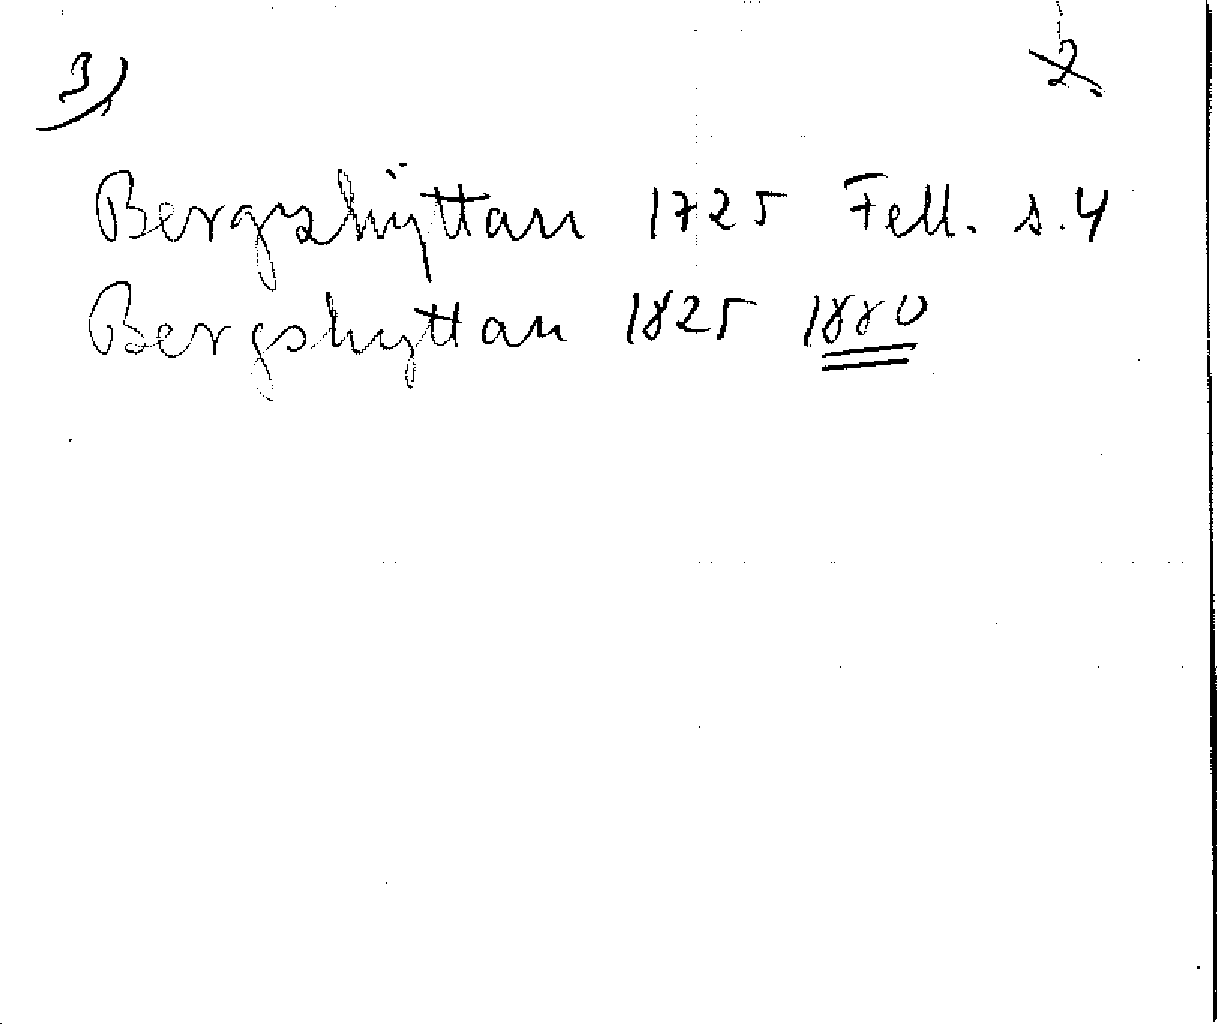 3) 2.
Bergshÿttan 1725 Fell. s.4
Bergshyttan 1825 1880